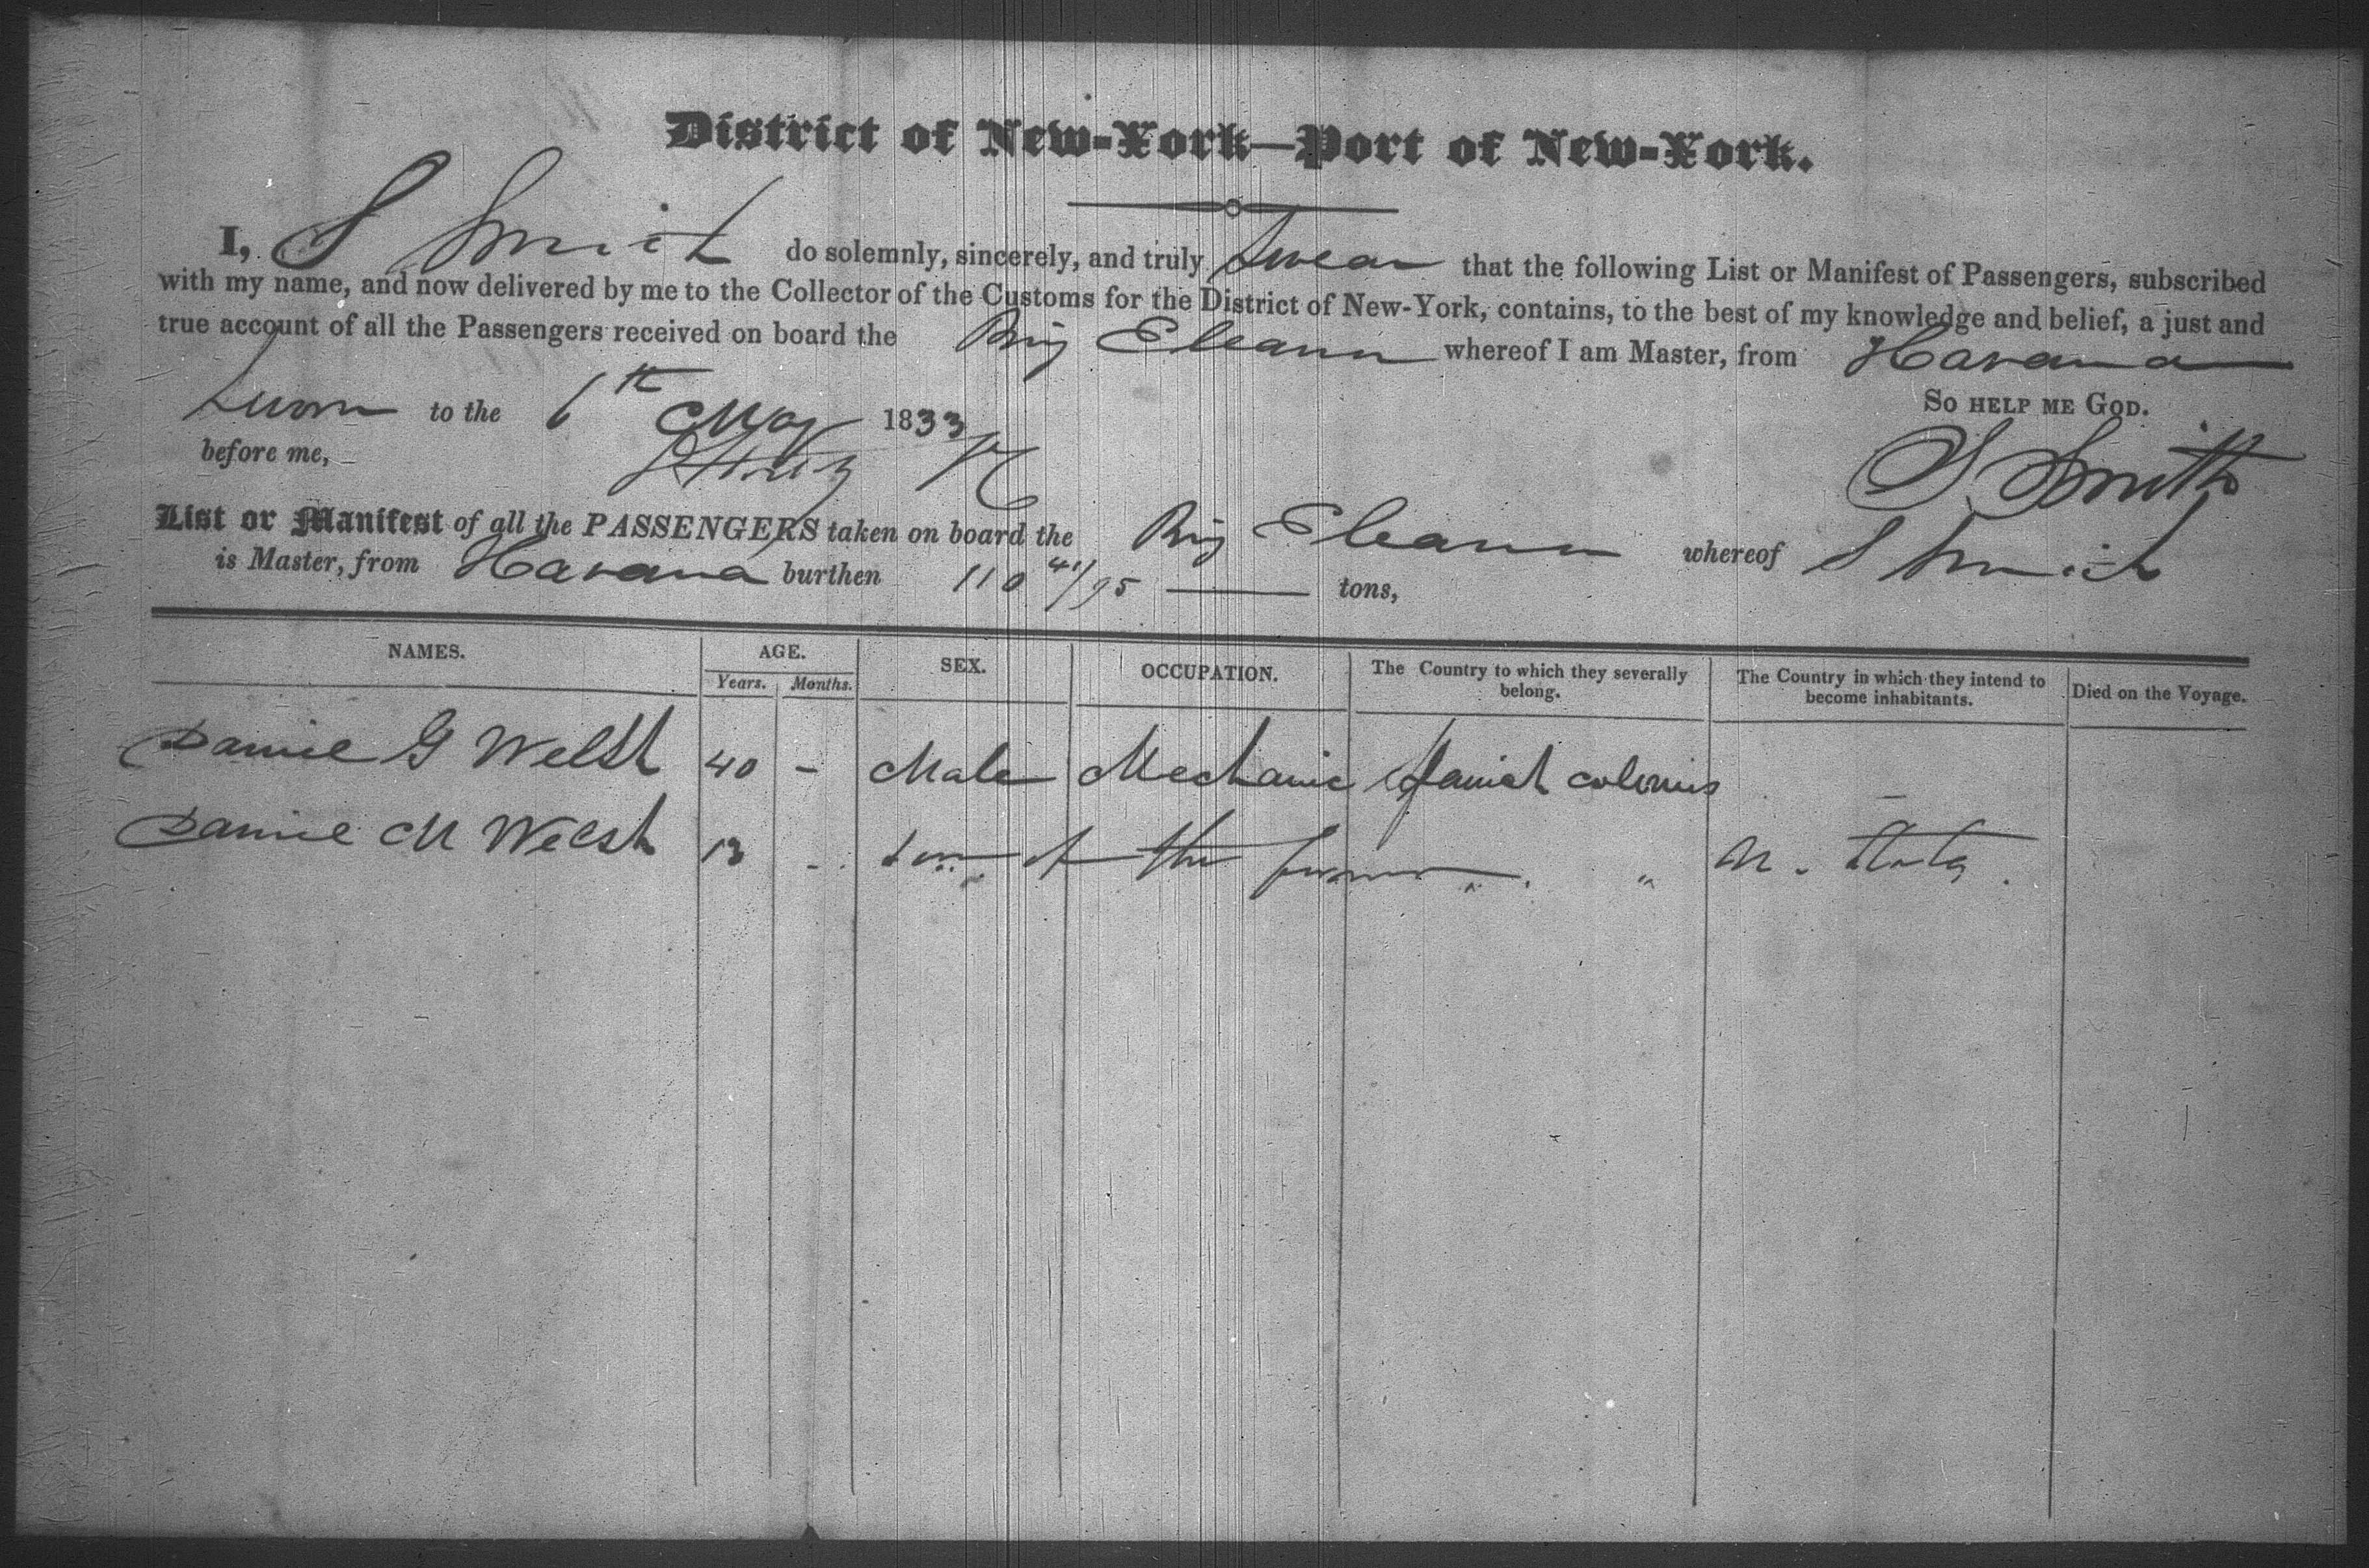 District of New-York—Port of New-York.
I, S Smith do solemnly, sincerely, and truly Swear that the following List or Manifest of Passengers, subscribed
with my name, and now delivered by me to the Collector of the Customs for the District of New-York, contains, to the best of my knowledge and belief, a just and
true account of all the Passengers received on board the Brig Eleann whereof I am Master, from Havana
So HELP ME GOD.
Sworn to the 6th May 1833
before me,
S Smith
List or Manifest of all the PASSENGERS taken on board the Brig Eleann whereof S Smith
is Master, from Havana burthen 110 41/95 tons,
NAMES. AGE. SEX. OCCUPATION. The Country to which they severally belong. The Country in which they intend to become inhabitants. Died on the Voyage.
Years. Months.
Daniel G Welsh 40 - Male Mechanic Spanish colonies
Daniel M Welsh 13 - son of the former " U. States